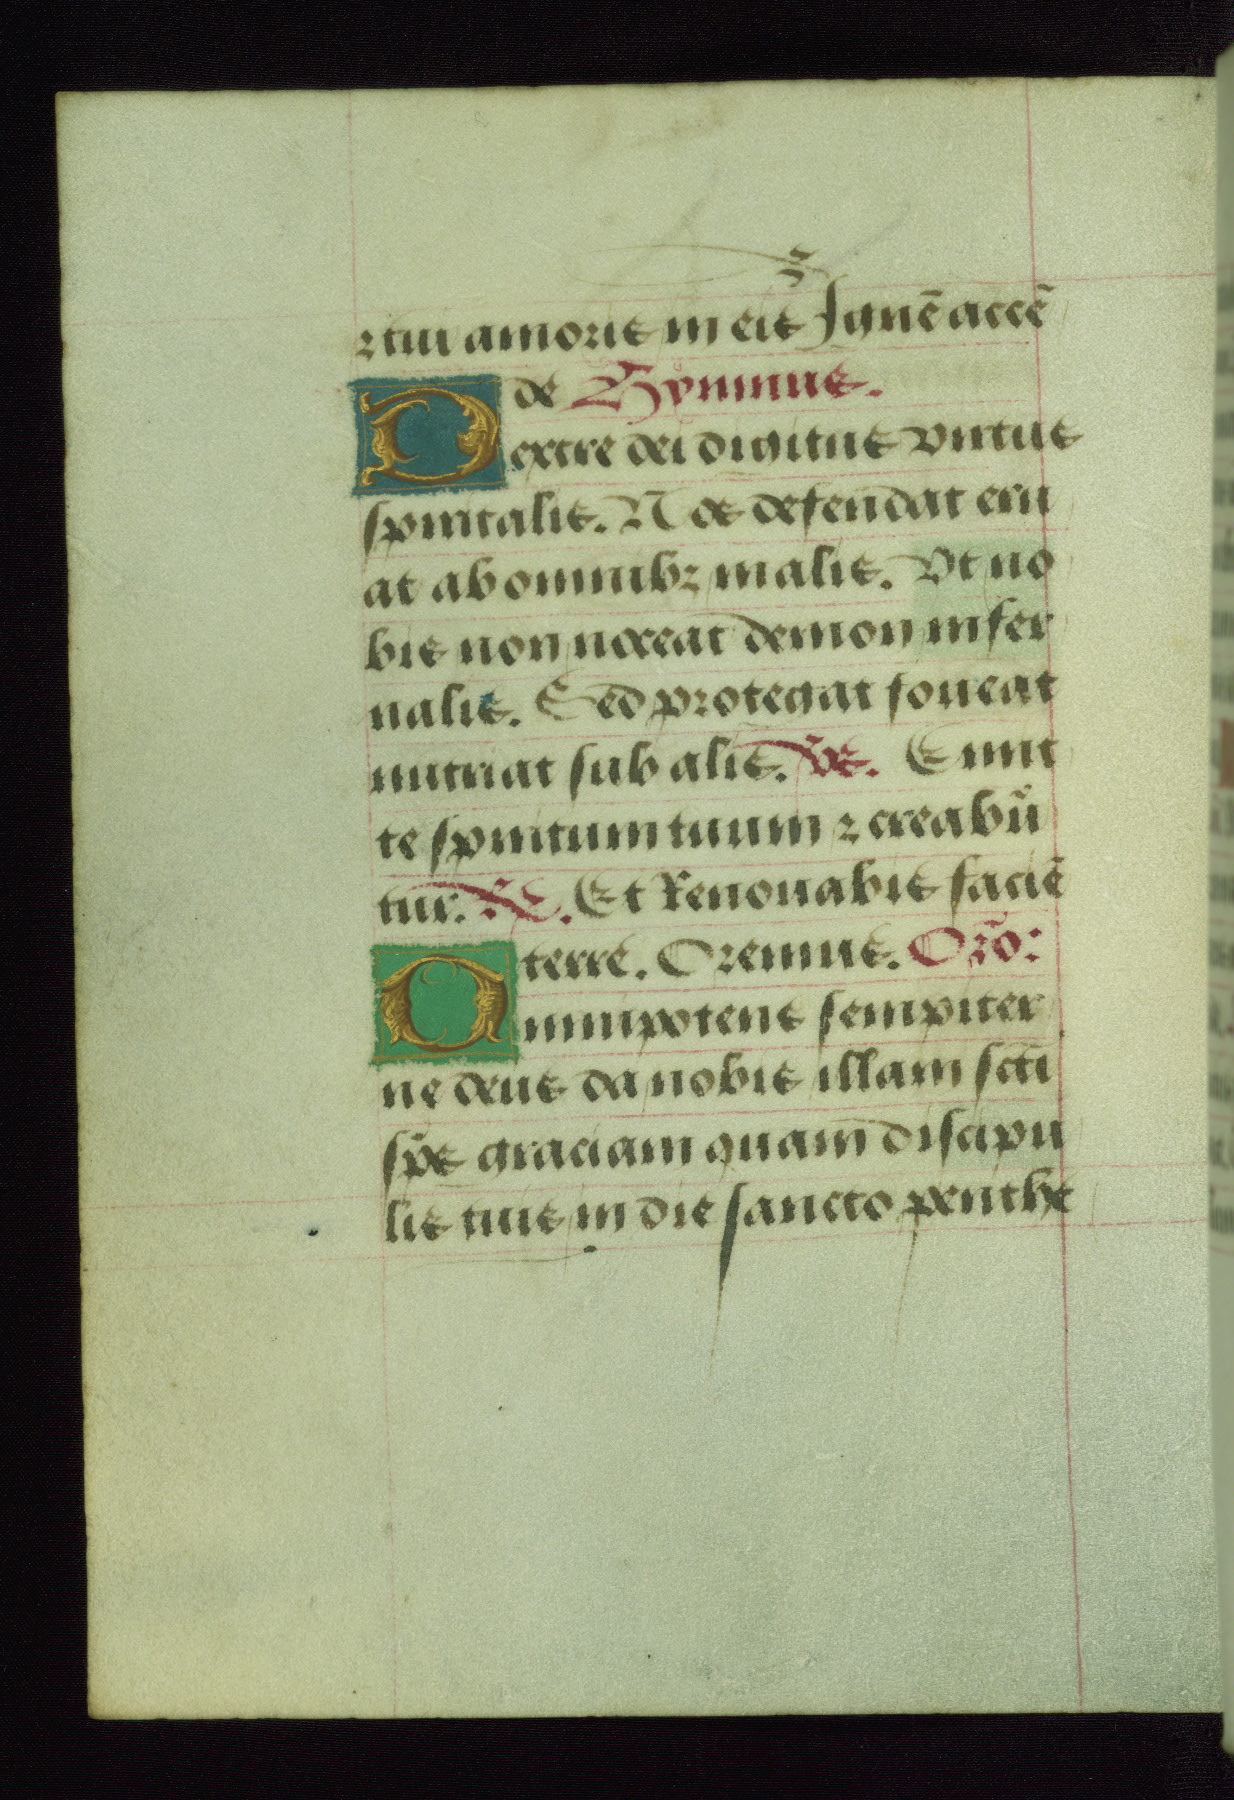 ⁊ tui amoris in eis Ignē accē
de Hymnus.
Dextre dei digitus virtus
spiritalis. Nos defendat eru
at ab omnibꝫ malis. Vt no
bis non noceat demon infer
nalis. Sed protegat foueat
nutriat sub alis. Vs. Emit
te spiritum tuum ⁊ creabū
tur. R. Et Renouabis faciē
terre. Oremus. Orō:
Omnipotens sempiter
ne deus da nobis illam scti
spc graciam quam discipu
lis tuis in die sancto penthe